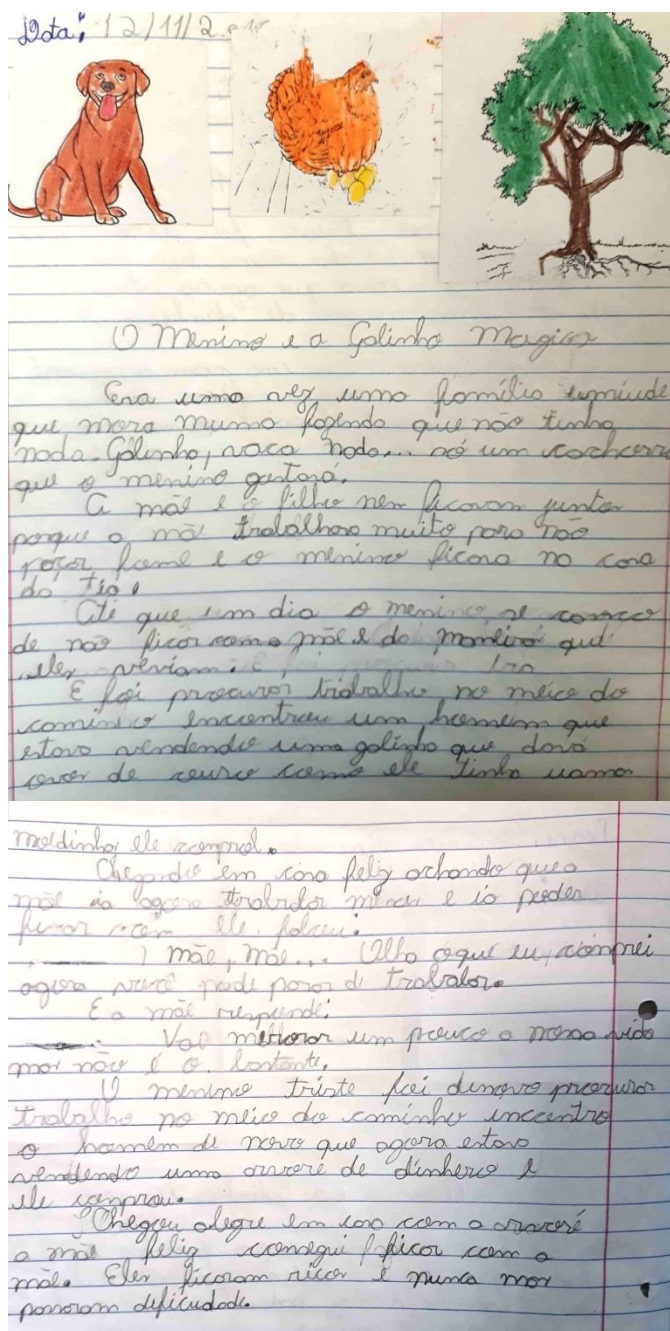 Data: 12/11/2
O Menino e a Galinha Magica
Era uma vez uma família umiude
que mora numa fazenda que não tinha
nada. Galinha, vaca nada... só um cachorro
que o menino gostava.
A mãe e o filho nem ficavam juntos
porque a mãe trabalhava muito para não
paçar fome e o menino ficava na casa
do tio.
Até que um dia o menino se
de não ficar com a mãe e da maneira que
eles viviam.
E foi procurar trabalho, no meio do
caminho encontrou um homem que
estava vendendo uma galinha que dava
ovos de ouro como ele tinha
moedinhas ele
Chegando em casa feliz achando que a
mãe ia agora menos e ia poder
ficar com ele. falou:
mãe, mãe... Olha o que eu comprei
agora você pode parar de trabalar.
E a mãe responde:
Vai melhorar um pouco a nossa vida
mas não é o bastante.
O menino triste foi denovo procurar
trabalho no meio do caminho encontro
o homem de novo que agora estava
vendendo uma arvore de dinhero e
ele comprou.
Chegou alegre em casa com a
a mãe feliz consegui ficar com a
mãe. Eles ficaram ricos e nunca mas
pasaram deficudade.